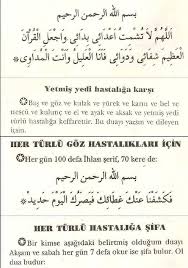 بسم الله الرحمن الرحيم
اَللّٰهُمَّ لَا تُشْمِتْ اَعْدَائِى بِدَائِى وَاجْعَلِ الْقُرْآنَ
الْعَظِيمَ شِفَائِى وَدَوَائِى فَاَنَا الْعَلِيلُ وَاَنْتَ الْمُدَاوِى
Yetmiş yedi hastalığa karşı
Baş ve göz ve kulak ve yürek ve karnı ve bel ve
ve kulunç ve el ve ayak ve aksak ve yetmiş yedi
türlü hastalığa keffarettir. Bu duayı yazsın ve dileyen
içsin.
HER TÜRLÜ GÖZ HASTALIKLARI İÇİN
Her gün 100 defa İhlas şerif, 70 kere de:
بسم الله الرحمن الرحيم
فَكَشَفْنَا عَنْكَ غِطَاءَكَ فَبَصَرُكَ الْيَوْمَ حَدِيدٌ
HER TÜRLÜ HASTALIĞA ŞİFA
Bir kimse aşağıdaki belirtmiş olduğum duayı
Akşam ve sabah her gün 7 defa okur ise şifa bulur. O
dua budur: